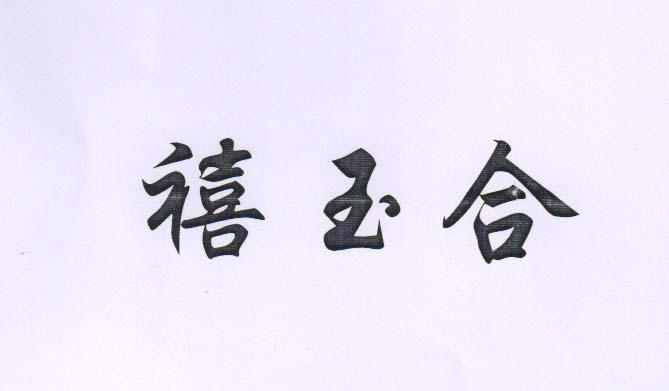 禧玉合